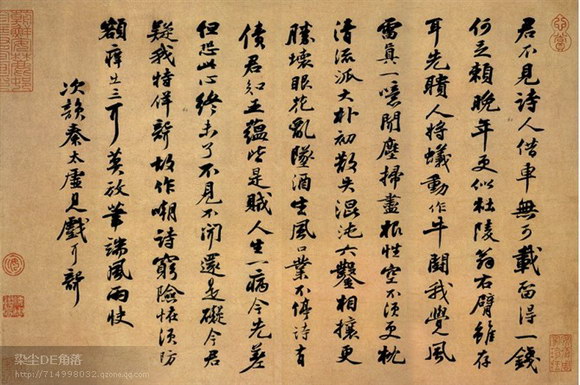 君不見詩人借車無可載留得一錢
何足賴晚年更似杜陵翁右臂雖存
耳先聵人將蟻動作牛鬪我覺風
雷真一噫聞塵掃盡根性空不須更枕
清流派大朴初散失混沌六鑿相攘更
勝壞眼花亂墜酒生風口業不停詩有
債君知五蘊皆是賊人生一病今先差
但恐此心終未了不見不聞還是礙今君
疑我特佯聾故作嘲詩窮險怪須防
額痒出三耳莫放筆端風雨快
次韻秦太虛見戲耳聾
染尘DE角落
http://714998032.qzone.qq.com